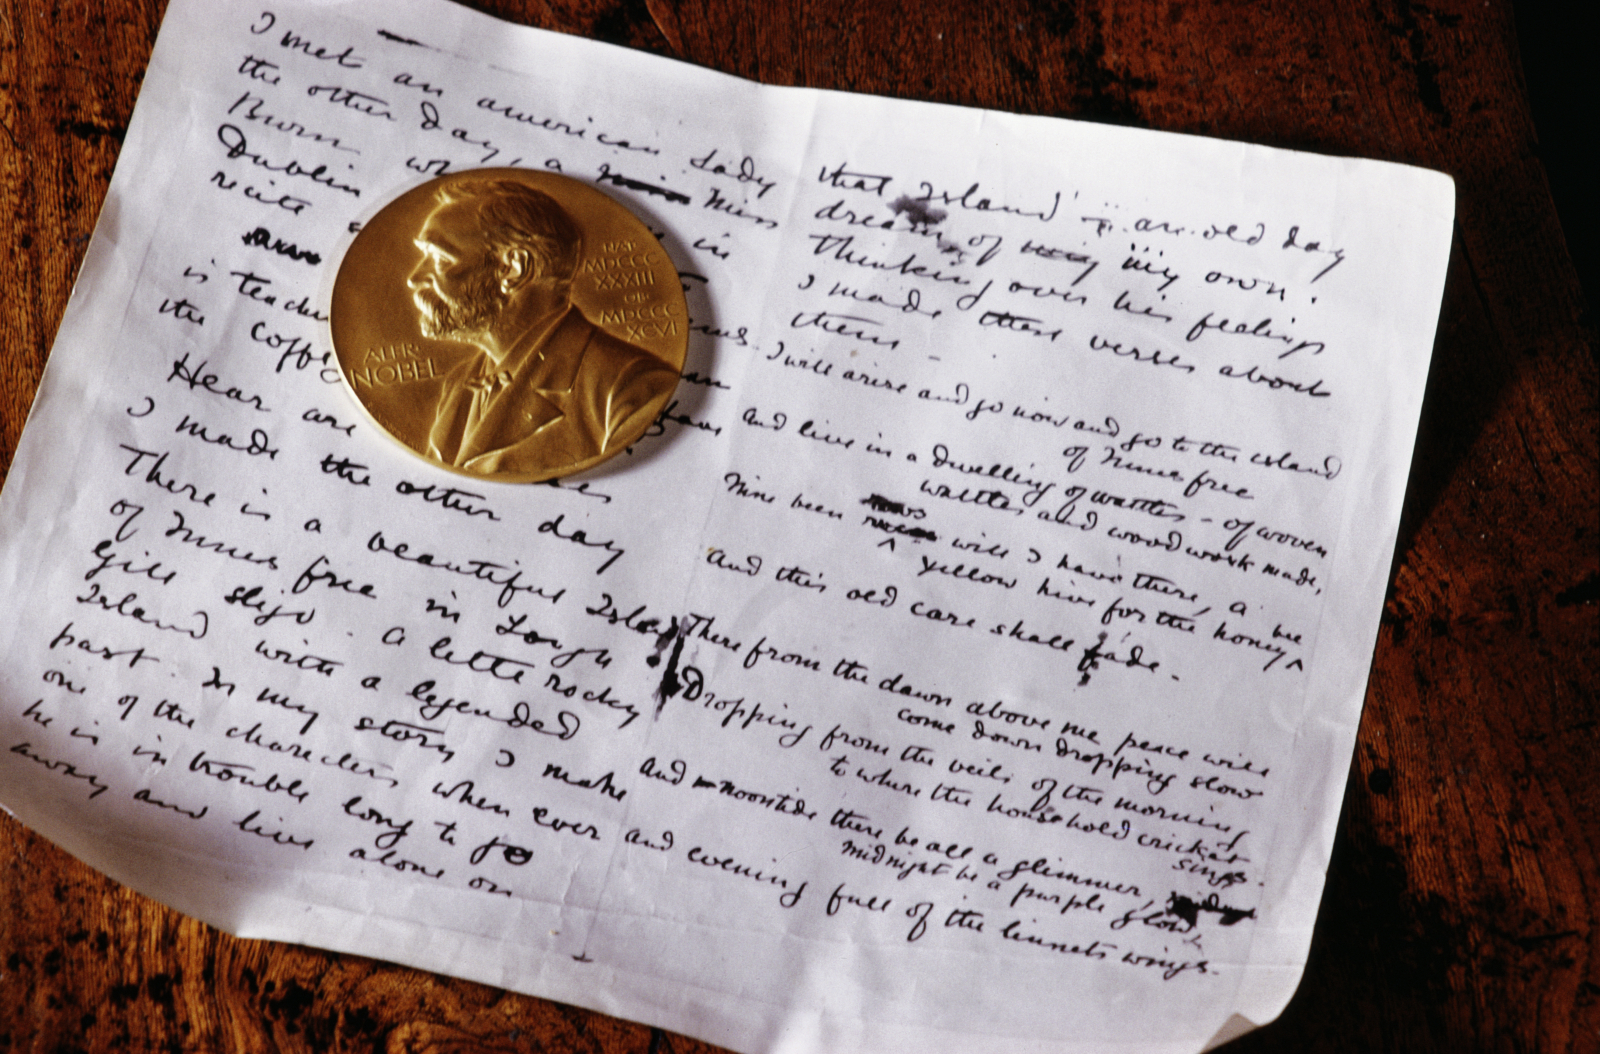 I met an american Lady
the other day, a Miss
Burn in
Dublin
recite
is teach
the coffe
Hear are
I made the other day
There is a beautiful Island
of Innis free in Lough
Gill Sligo. A little rocky
Island with a legended
past. In my story I make
one of the characters when ever
he is in trouble long to go
away and live alone on
ALFR.
NOBEL
NAT.
MDCCC
XXXIII
OB.
MDCCC
XCVI
that Island – an old day
dream of my own.
Thinking over his feelings
I made these verses about
them –
I will arise and go now and go to the island
of Innis free
And live in a dwelling of wattles – of woven
wattles and wood work made,
Nine bean rows will I have there, a
yellow hive for the honey bee
And this old care shall fade.
There from the dawn above me peace will
come down dropping slow
Dropping from the veils of the morning
to where the household cricket
sings.
And noontide there be all a glimmer,
midnight be a purple glow
and evening full of the linnets wings.